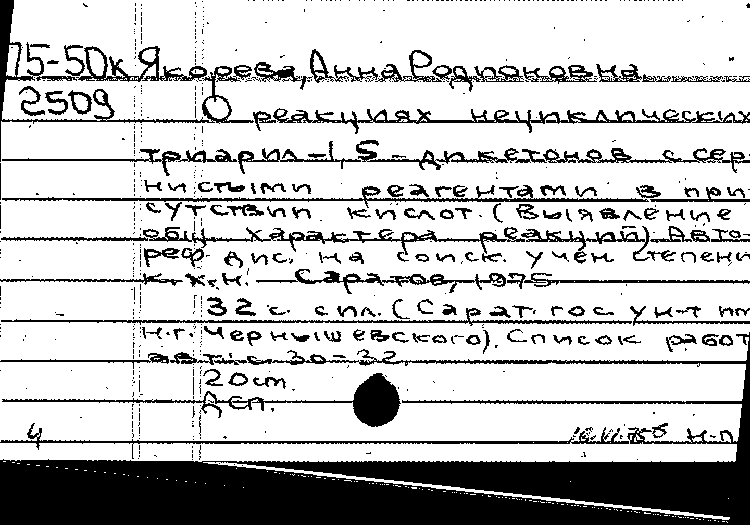 75-50к Якорева, Анна Родионовна
2509 О реакциях нециклических
триарил-1,5-дикетонов с сер-
нистыми реагентами в при-
сутствии кислот. (Выявление
общ. характера реакций). Авто-
реф. дис. на соиск. учен. степени
к.х.н. Саратов, 1975.
32 с. с ил. (Сарат. гос. ун-т им.
Н.Г. Чернышевского). Список работ
авт.: с. 30-32.
20ст.
Деп.
4 Н-П